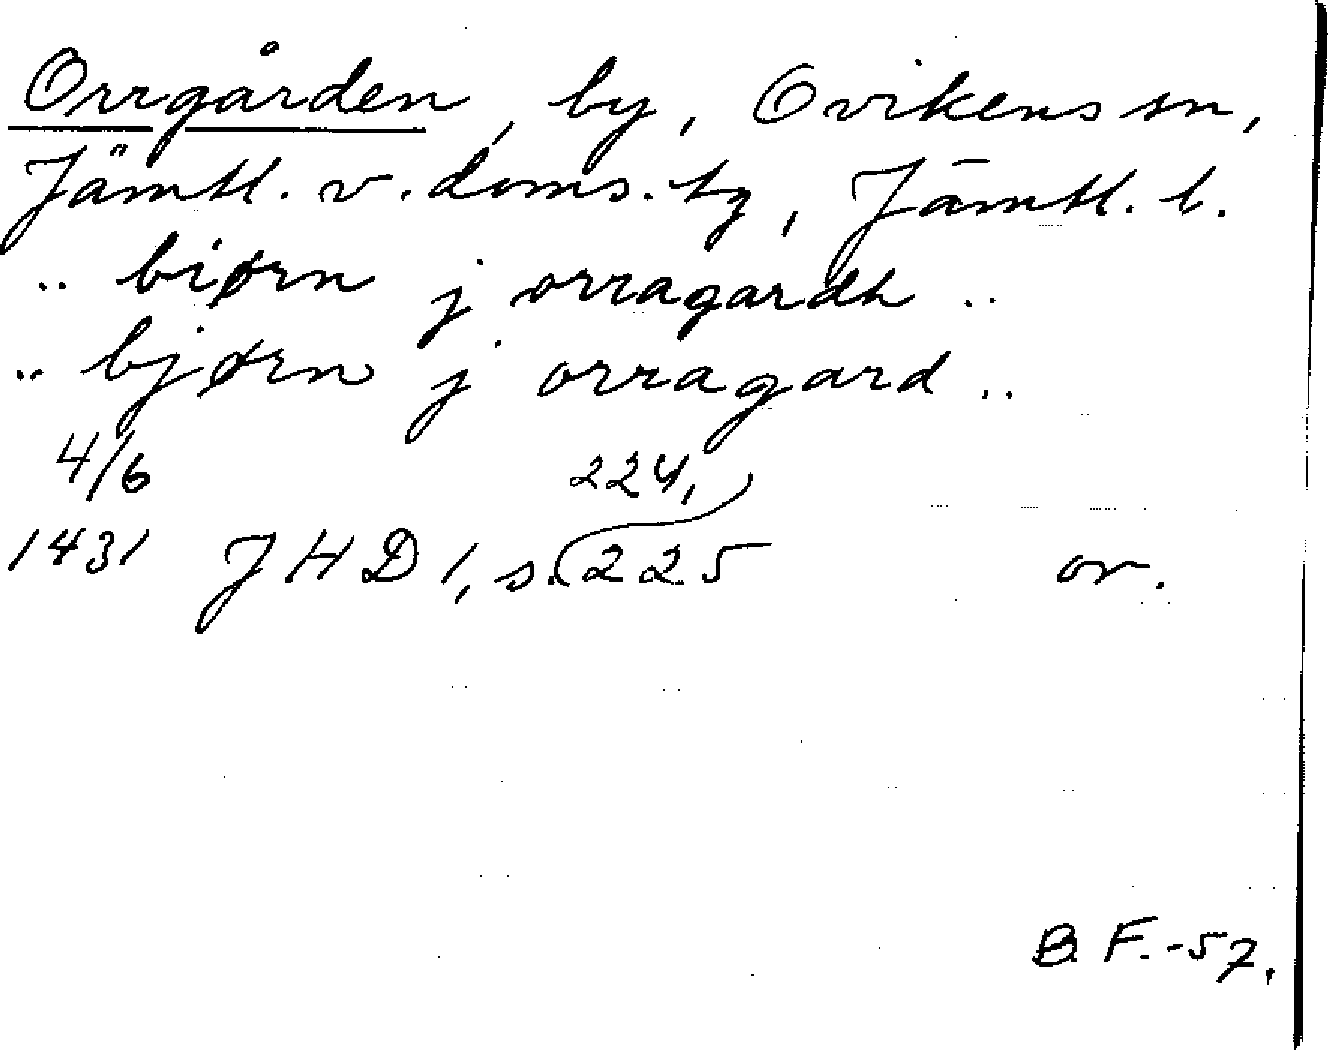 Orrgården, by, Ovikens sn,
Jämtl. v. doms. tg, Jämtl. l.
.. biørn j orragardh ..
.. bjørn j orragard ..
4/6 224,
1431 JHD 1, s. 225 or.
B.F.-57.